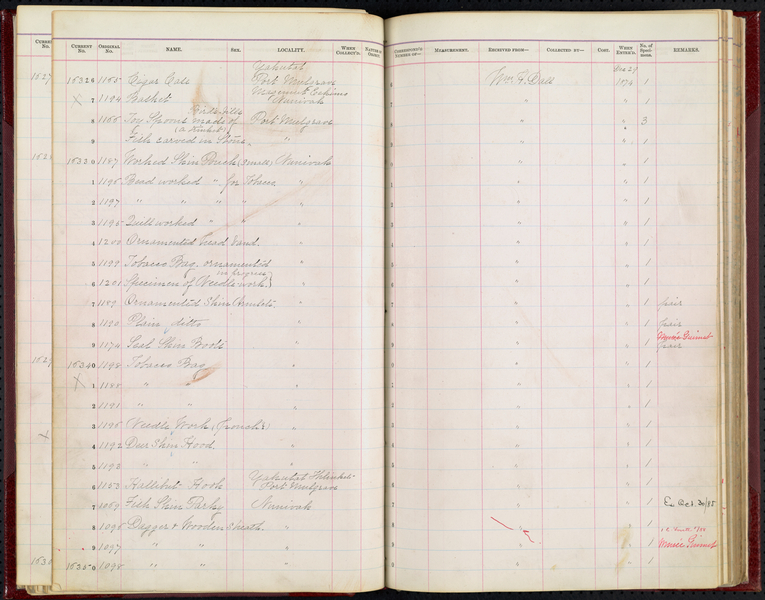 CURRENT No. ORIGINAL No. NAME. SEX. LOCALITY. WHEN COLLECT'D. NATURE OF OBJECT. CORRESPOND'G NUMBER ON— MEASUREMENT. RECEIVED FROM— COLLECTED BY— COST. WHEN ENTER'D. No. of Speci- mens. REMARKS.
Yakutat Dec 29
16326 1165 Cigar Case Port Mulgrave Wm. H. Dall 1874 1
Eskimo
7 1194 Basket Nunivak " " 1
8 1166 Toy Spoons made of Port Mulgrave " " 3
9 Fish carved in Stone " " " 1
16330 1187 Worked Skin Pouch (Small) Nunivak " " 1
1 1196 Bead worked " for Tobacco " " " 1
2 1197 " " " " " " " 1
3 1195 Quill worked " " " " 1
4 1200 Ornamented head band. " " " 1
5 1199 Tobacco Bag ornamented " " " 1
6 1201 Specimen of Needle work " " " 1
7 1189 Ornamented Skin Armlets " " " 1 pair
8 1190 Plain ditto " " " 1 pair
Musée Guimet
9 1174 Seal Skin Boots " " " 1 pair
16340 1198 Tobacco Bag " " " 1
1 1188 " " " " " 1
2 1191 " " " " " 1
3 1195 Needle Work (Pouch) " " " 1
4 1192 Deer Skin Hood " " " 1
5 1193 " " " " " 1
Yakutat
6 1153 Hallibut Hook Port Mulgrave " " 1
7 1059 Fish Skin Parky Nunivak " " 1 Ex. Oct. 30/85
8 1096 Dagger & Wooden Sheath. " " " 1
9 1097 " " " " " 1 Musée Guimet
16350 1098 " " " " " 1